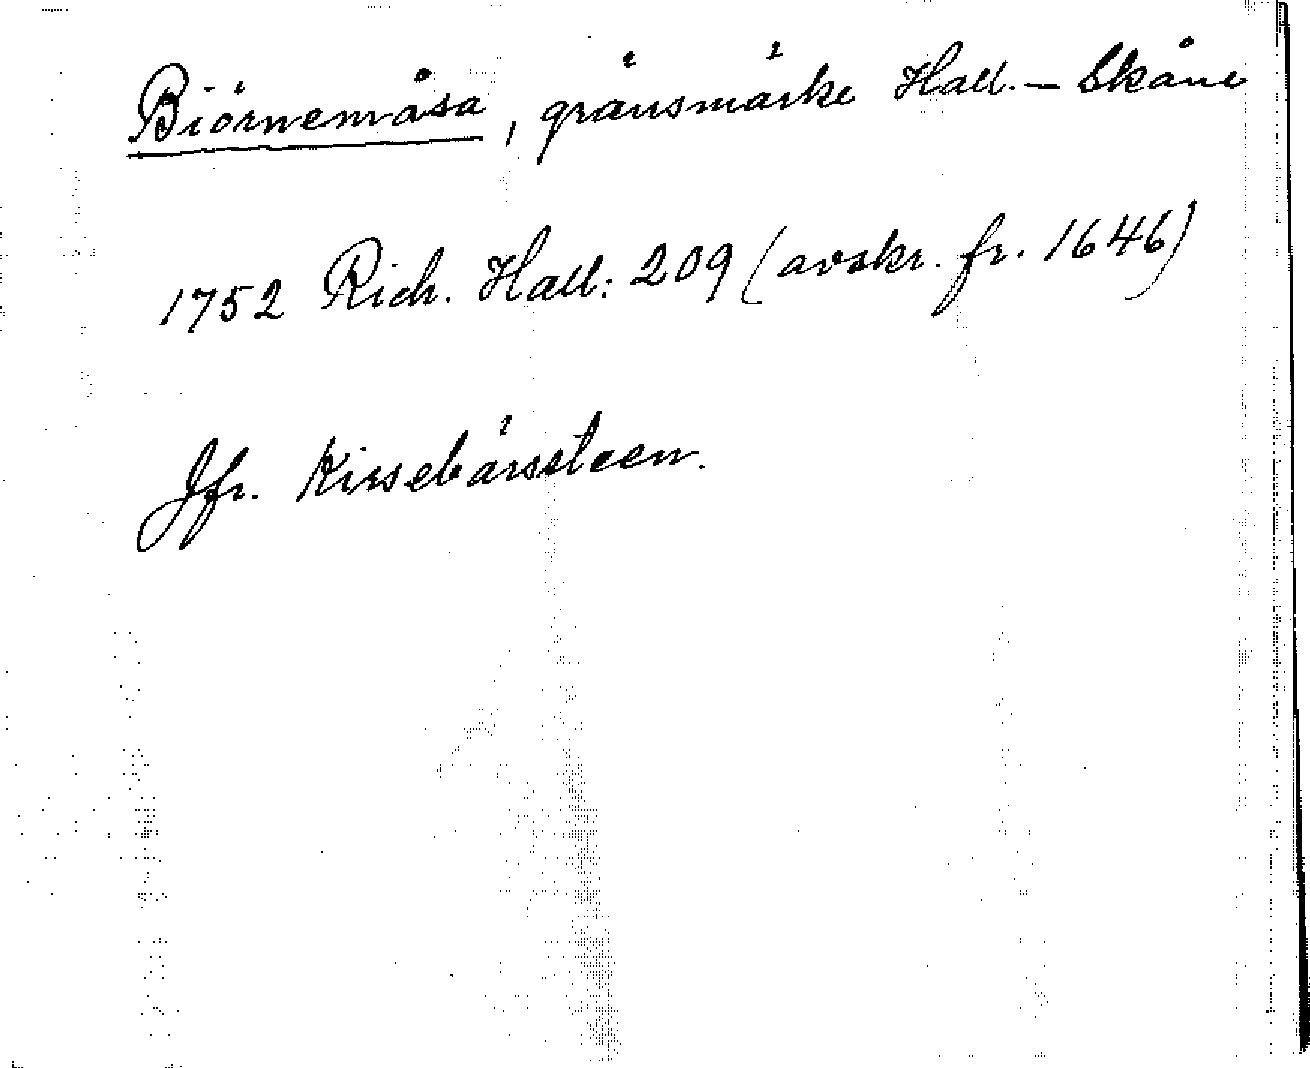 Biörnemåsa, gränsmärke Hall. – Skåne
1752 Rich. Hall: 209 (avskr. fr. 1646)
Jfr. Kirsebärssteen.